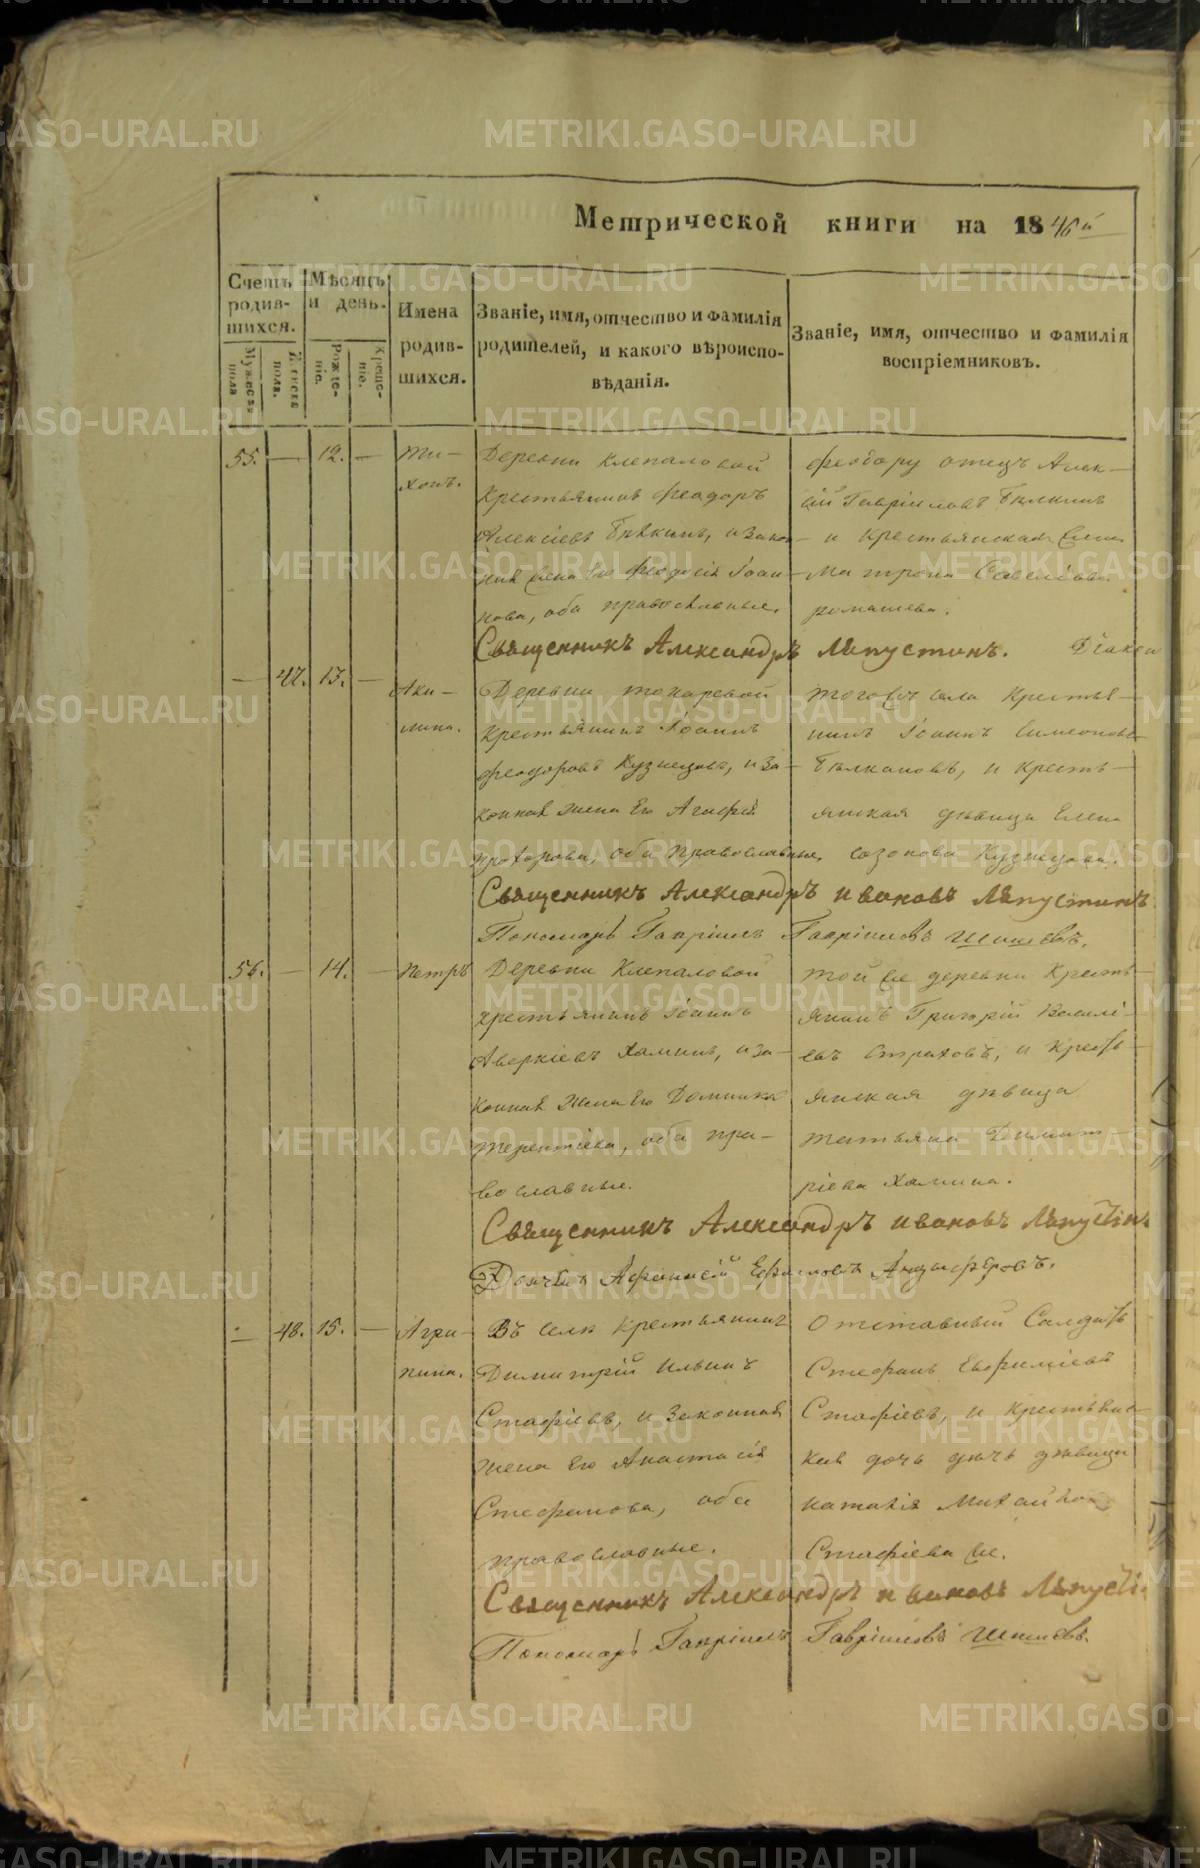 Метрической книги на 1846й
Счетъ родив-шихся.
Мужеска пола
Женска пола.
Мѣсяцъ и день.
Рожде-ніе.
Креще-ніе.
Имена родив-шихся.
Званіе, имя, отчество и фамилія родителей, и какого вѣроиспо-вѣданія.
Званіе, имя, отчество и фамилія воспріемниковъ.
55. — 12. —
Ти-
хонъ.
Деревни Клепаловой
Крестьянинъ Феодоръ
Алексіевъ Бѣлкинъ, и закон-
ная жена Его Феодосія Іоан-
нова, оба православные.
Феодору отецъ Алек-
ѣй Гавріиловъ Бѣлкинъ
и Крестьянская жена
Матрона Савелиева
ромашева.
Священникъ Александръ Ляпустинъ.
— 47. 13. —
Аки-
лина.
Деревни токаревой
Крестьянинъ Іоаннъ
Феодоровъ Кузнецовъ, и за-
конная жена Его Агафія
прохорова, оба православные.
тогожъ села Крестья-
нинъ Іоаннъ Симеоновъ
и Крестъ-
янская дѣвица Елена
созонова Кузнецова.
Священникъ Александръ Ивановъ Ляпустинъ
Пономарь Гавріилъ Гавріиловъ Шишевъ.
56. — 14. —
Петръ
Деревни Клепаловой
Крестьянинъ Іоаннъ
Аверкіевъ Хаминъ, и за-
конная Жена Его Домника
терентіева, оба пра-
вославные.
той же деревни Кресть-
янинъ Григорій Василі-
евъ Страховъ, и Кресть-
янская дѣвица
татьяна Димит-
ріева Хамина.
Священникъ Александръ Ивановъ Ляпустинъ
Дьячекъ Афанасій Ефимовъ
— 48. 15. —
Агри-
пина.
Въ селѣ Крестьянинъ
Димитрій Ильинъ
Стафіевъ, и Законная
жена Его Анастасія
Стефанова, оба
православные.
Отставный Солдатъ
Стефанъ Евфиміевъ
Стафіевъ, и Крестьянс-
кая дочь дѣвица
наталія Михайлова
Стафіева же.
Священникъ Александръ Ивановъ Ляпусти
Пономарь Гавріилъ Гавріиловъ Шишевъ.
METRIKI.GASO-URAL.RU